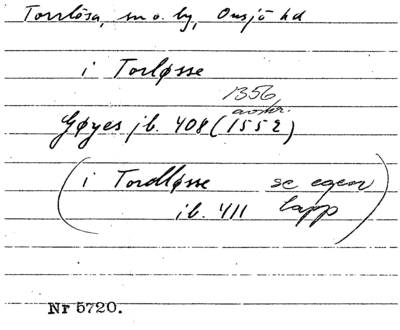 Torrlösa, sn o. by, Onsjö hd
i Torløsse
1356
avskr.
Gøyes jb. 408 (1552)
(i Tordløsse se egen
ib. 411 lapp)
Nr 5720.